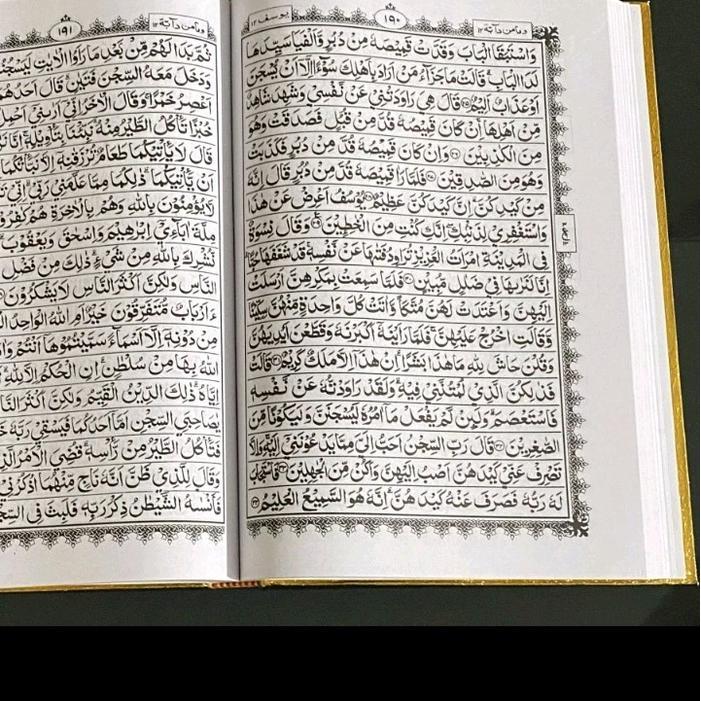 ومامن دآبة ١٢
١٩٠
يوسف ١٢
وَاسْتَبَقَا الْبَابَ وَقَدَّتْ قَمِيْصَهٗ مِنْ دُبُرٍ وَّاَلْفَيَا سَيِّدَهَا
لَدَا الْبَابِ ؕ قَالَتْ مَا جَزَآءُ مَنْ اَرَادَ بِاَهْلِكَ سُوْٓءًا اِلَّاۤ اَنْ يُّسْجَنَ
اَوْ عَذَابٌ اَلِيْمٌ ﴿۲۵﴾ قَالَ هِيَ رَاوَدَتْنِيْ عَنْ نَّفْسِيْ وَشَهِدَ شَاهِدٌ
مِّنْ اَهْلِهَا ۚ اِنْ كَانَ قَمِيْصُهٗ قُدَّ مِنْ قُبُلٍ فَصَدَقَتْ وَهُوَ
مِنَ الْكٰذِبِيْنَ ﴿۲۶﴾ وَاِنْ كَانَ قَمِيْصُهٗ قُدَّ مِنْ دُبُرٍ فَكَذَبَتْ
وَهُوَ مِنَ الصّٰدِقِيْنَ ﴿۲۷﴾ فَلَمَّا رَاٰ قَمِيْصَهٗ قُدَّ مِنْ دُبُرٍ قَالَ اِنَّهٗ
مِنْ كَيْدِكُنَّ ؕ اِنَّ كَيْدَكُنَّ عَظِيْمٌ ﴿۲۸﴾ يُوْسُفُ اَعْرِضْ عَنْ هٰذَا
وَاسْتَغْفِرِيْ لِذَنْۢبِكِ ۖ اِنَّكِ كُنْتِ مِنَ الْخٰطِـِٕيْنَ ﴿۲۹﴾ وَقَالَ نِسْوَةٌ
فِي الْمَدِيْنَةِ امْرَاَتُ الْعَزِيْزِ تُرَاوِدُ فَتٰىهَا عَنْ نَّفْسِهٖ ۚ قَدْ شَغَفَهَا حُبًّا ؕ
اِنَّا لَنَرٰىهَا فِيْ ضَلٰلٍ مُّبِيْنٍ ﴿۳۰﴾ فَلَمَّا سَمِعَتْ بِمَكْرِهِنَّ اَرْسَلَتْ
اِلَيْهِنَّ وَاَعْتَدَتْ لَهُنَّ مُتَّكَاً وَّاٰتَتْ كُلَّ وَاحِدَةٍ مِّنْهُنَّ سِكِّيْنًا
وَّقَالَتِ اخْرُجْ عَلَيْهِنَّ ۚ فَلَمَّا رَاَيْنَهٗۤ اَكْبَرْنَهٗ وَقَطَّعْنَ اَيْدِيَهُنَّ
وَقُلْنَ حَاشَ لِلّٰهِ مَا هٰذَا بَشَرًا ؕ اِنْ هٰذَاۤ اِلَّا مَلَكٌ كَرِيْمٌ ﴿۳۱﴾ قَالَتْ
فَذٰلِكُنَّ الَّذِيْ لُمْتُنَّنِيْ فِيْهِ ؕ وَلَقَدْ رَاوَدْتُّهٗ عَنْ نَّفْسِهٖ
فَاسْتَعْصَمَ ؕ وَلَئِنْ لَّمْ يَفْعَلْ مَاۤ اٰمُرُهٗ لَيُسْجَنَنَّ وَلَيَكُوْنًا مِّنَ
الصّٰغِرِيْنَ ﴿۳۲﴾ قَالَ رَبِّ السِّجْنُ اَحَبُّ اِلَيَّ مِمَّا يَدْعُوْنَنِيْۤ اِلَيْهِ ۚ وَاِلَّا
تَصْرِفْ عَنِّيْ كَيْدَهُنَّ اَصْبُ اِلَيْهِنَّ وَاَكُنْ مِّنَ الْجٰهِلِيْنَ ﴿۳۳﴾ فَاسْتَجَابَ
لَهٗ رَبُّهٗ فَصَرَفَ عَنْهُ كَيْدَهُنَّ ؕ اِنَّهٗ هُوَ السَّمِيْعُ الْعَلِيْمُ ﴿۳۴﴾
ومامن دآبة ١٢
١٩١
ثُمَّ بَدَا لَهُمْ مِّنْۢ بَعْدِ مَا رَاَوُا الْاٰيٰتِ
وَدَخَلَ مَعَهُ السِّجْنَ فَتَيٰنِ ؕ قَالَ
اَعْصِرُ خَمْرًا ۚ وَقَالَ الْاٰخَرُ اِنِّيْۤ اَرٰىنِيْۤ
خُبْزًا تَاْكُلُ الطَّيْرُ مِنْهُ ؕ نَبِّئْنَا بِتَاْوِيْلِهٖ ۚ
قَالَ لَا يَاْتِيْكُمَا طَعَامٌ تُرْزَقٰنِهٖۤ اِلَّا نَبَّاْتُكُمَا
اَنْ يَّاْتِيَكُمَا ؕ ذٰلِكُمَا مِمَّا عَلَّمَنِيْ رَبِّيْ ؕ اِنِّيْ
لَّا يُؤْمِنُوْنَ بِاللّٰهِ وَهُمْ بِالْاٰخِرَةِ هُمْ
مِلَّةَ اٰبَآءِيْۤ اِبْرٰهِيْمَ وَاِسْحٰقَ وَيَعْقُوْبَ ؕ
نُّشْرِكَ بِاللّٰهِ مِنْ شَيْءٍ ؕ ذٰلِكَ مِنْ فَضْلِ
النَّاسِ وَلٰكِنَّ اَكْثَرَ النَّاسِ لَا يَشْكُرُوْنَ
ءَاَرْبَابٌ مُّتَفَرِّقُوْنَ خَيْرٌ اَمِ اللّٰهُ الْوَاحِدُ
مِنْ دُوْنِهٖۤ اِلَّاۤ اَسْمَآءً سَمَّيْتُمُوْهَاۤ اَنْتُمْ
اللّٰهُ بِهَا مِنْ سُلْطٰنٍ ؕ اِنِ الْحُكْمُ اِلَّا لِلّٰهِ ؕ
اِيَّاهُ ؕ ذٰلِكَ الدِّيْنُ الْقَيِّمُ وَلٰكِنَّ اَكْثَرَ
يٰصَاحِبَيِ السِّجْنِ اَمَّاۤ اَحَدُكُمَا فَيَسْقِيْ رَبَّهٗ
فَتَاْكُلُ الطَّيْرُ مِنْ رَّاْسِهٖ ؕ قُضِيَ الْاَمْرُ
وَقَالَ لِلَّذِيْ ظَنَّ اَنَّهٗ نَاجٍ مِّنْهُمَا
فَاَنْسٰىهُ الشَّيْطٰنُ ذِكْرَ رَبِّهٖ فَلَبِثَ فِي